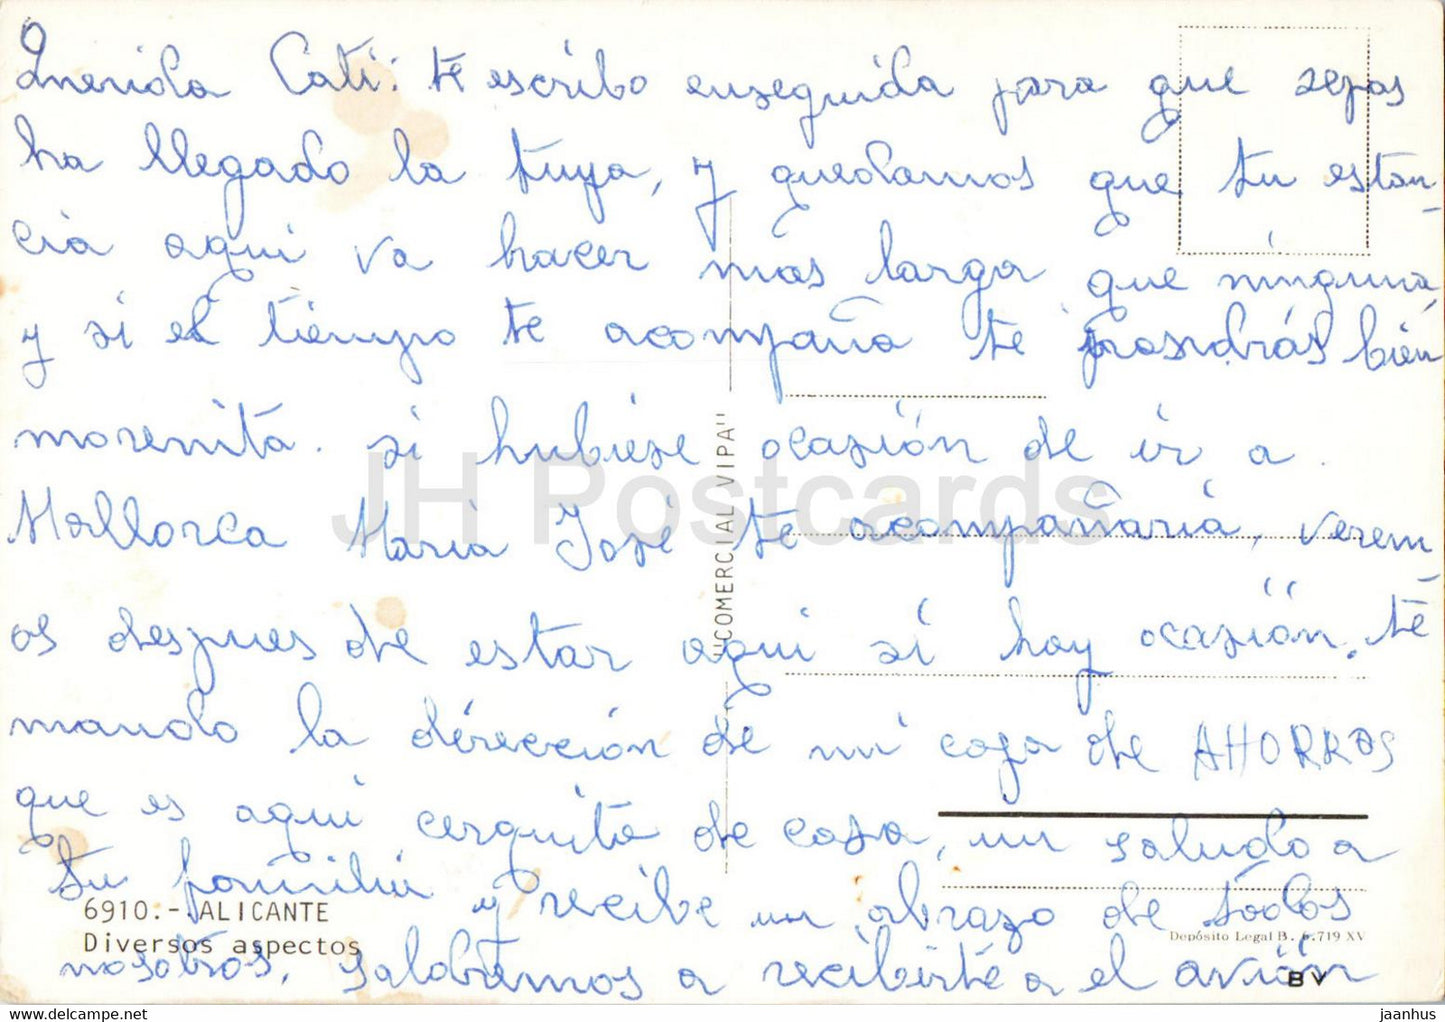 Querida Cati: te escribo enseguida para que sepas
ha llegado la tuya, y quedamos que tu estan-
cia aqui va hacer mas larga que ninguna,
y si el tiempo te acompaña te pondrás bien
morenita. si hubiese ocasión de ir a
Mallorca Maria José te acompañaria, verem
os despues de estar aqui si hay ocasión. te
mando la dirección de mi caja de AHORROS
que es aqui cerquita de casa, un saludo a
tu familia y recibe un abrazo de todos
nosotros, saldremos a recibirte a el avión
"COMERCIAL VIPA"
6910.- ALICANTE
Diversos aspectos
Depósito Legal B. 6.719 XV
BV
JH Postcards
https://jhpostcards.com
jaanhus